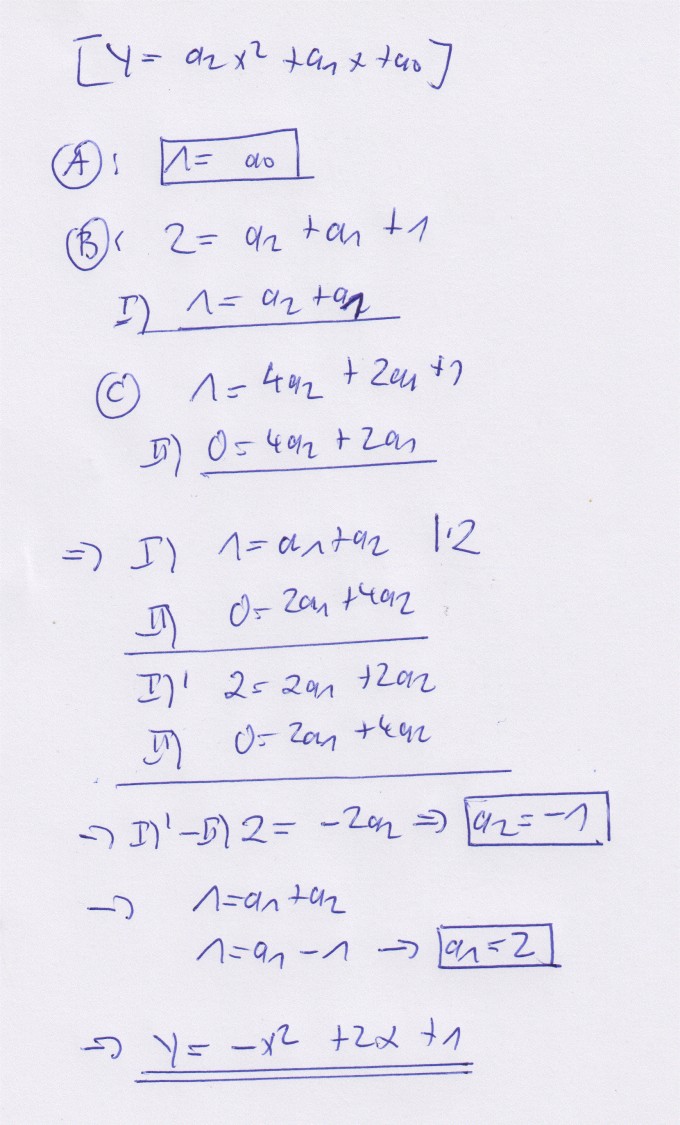 [Y = a₂x² + a₁x + a₀]
Ⓐ: 1 = a₀
Ⓑ: 2 = a₂ + a₁ + 1
I) 1 = a₂ + a₁
Ⓒ 1 = 4a₂ + 2a₁ + 1
II) 0 = 4a₂ + 2a₁
=> I) 1 = a₁ + a₂ |·2
II) 0 = 2a₁ + 4a₂
I)' 2 = 2a₁ + 2a₂
II) 0 = 2a₁ + 4a₂
-> I)' - II) 2 = -2a₂ => a₂ = -1
-> 1 = a₁ + a₂
1 = a₁ - 1 -> a₁ = 2
=> Y = -x² + 2x + 1